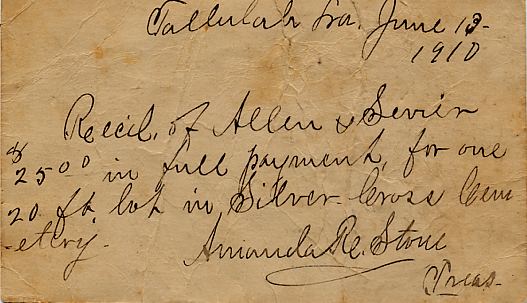 Tallulah La. June 13-
1910
Recd. of Allen & Sevier
$2500 in full payment, for one
20 ft. lot in Silver Cross Cem
-etery.
Amanda R. Stone
Treas.